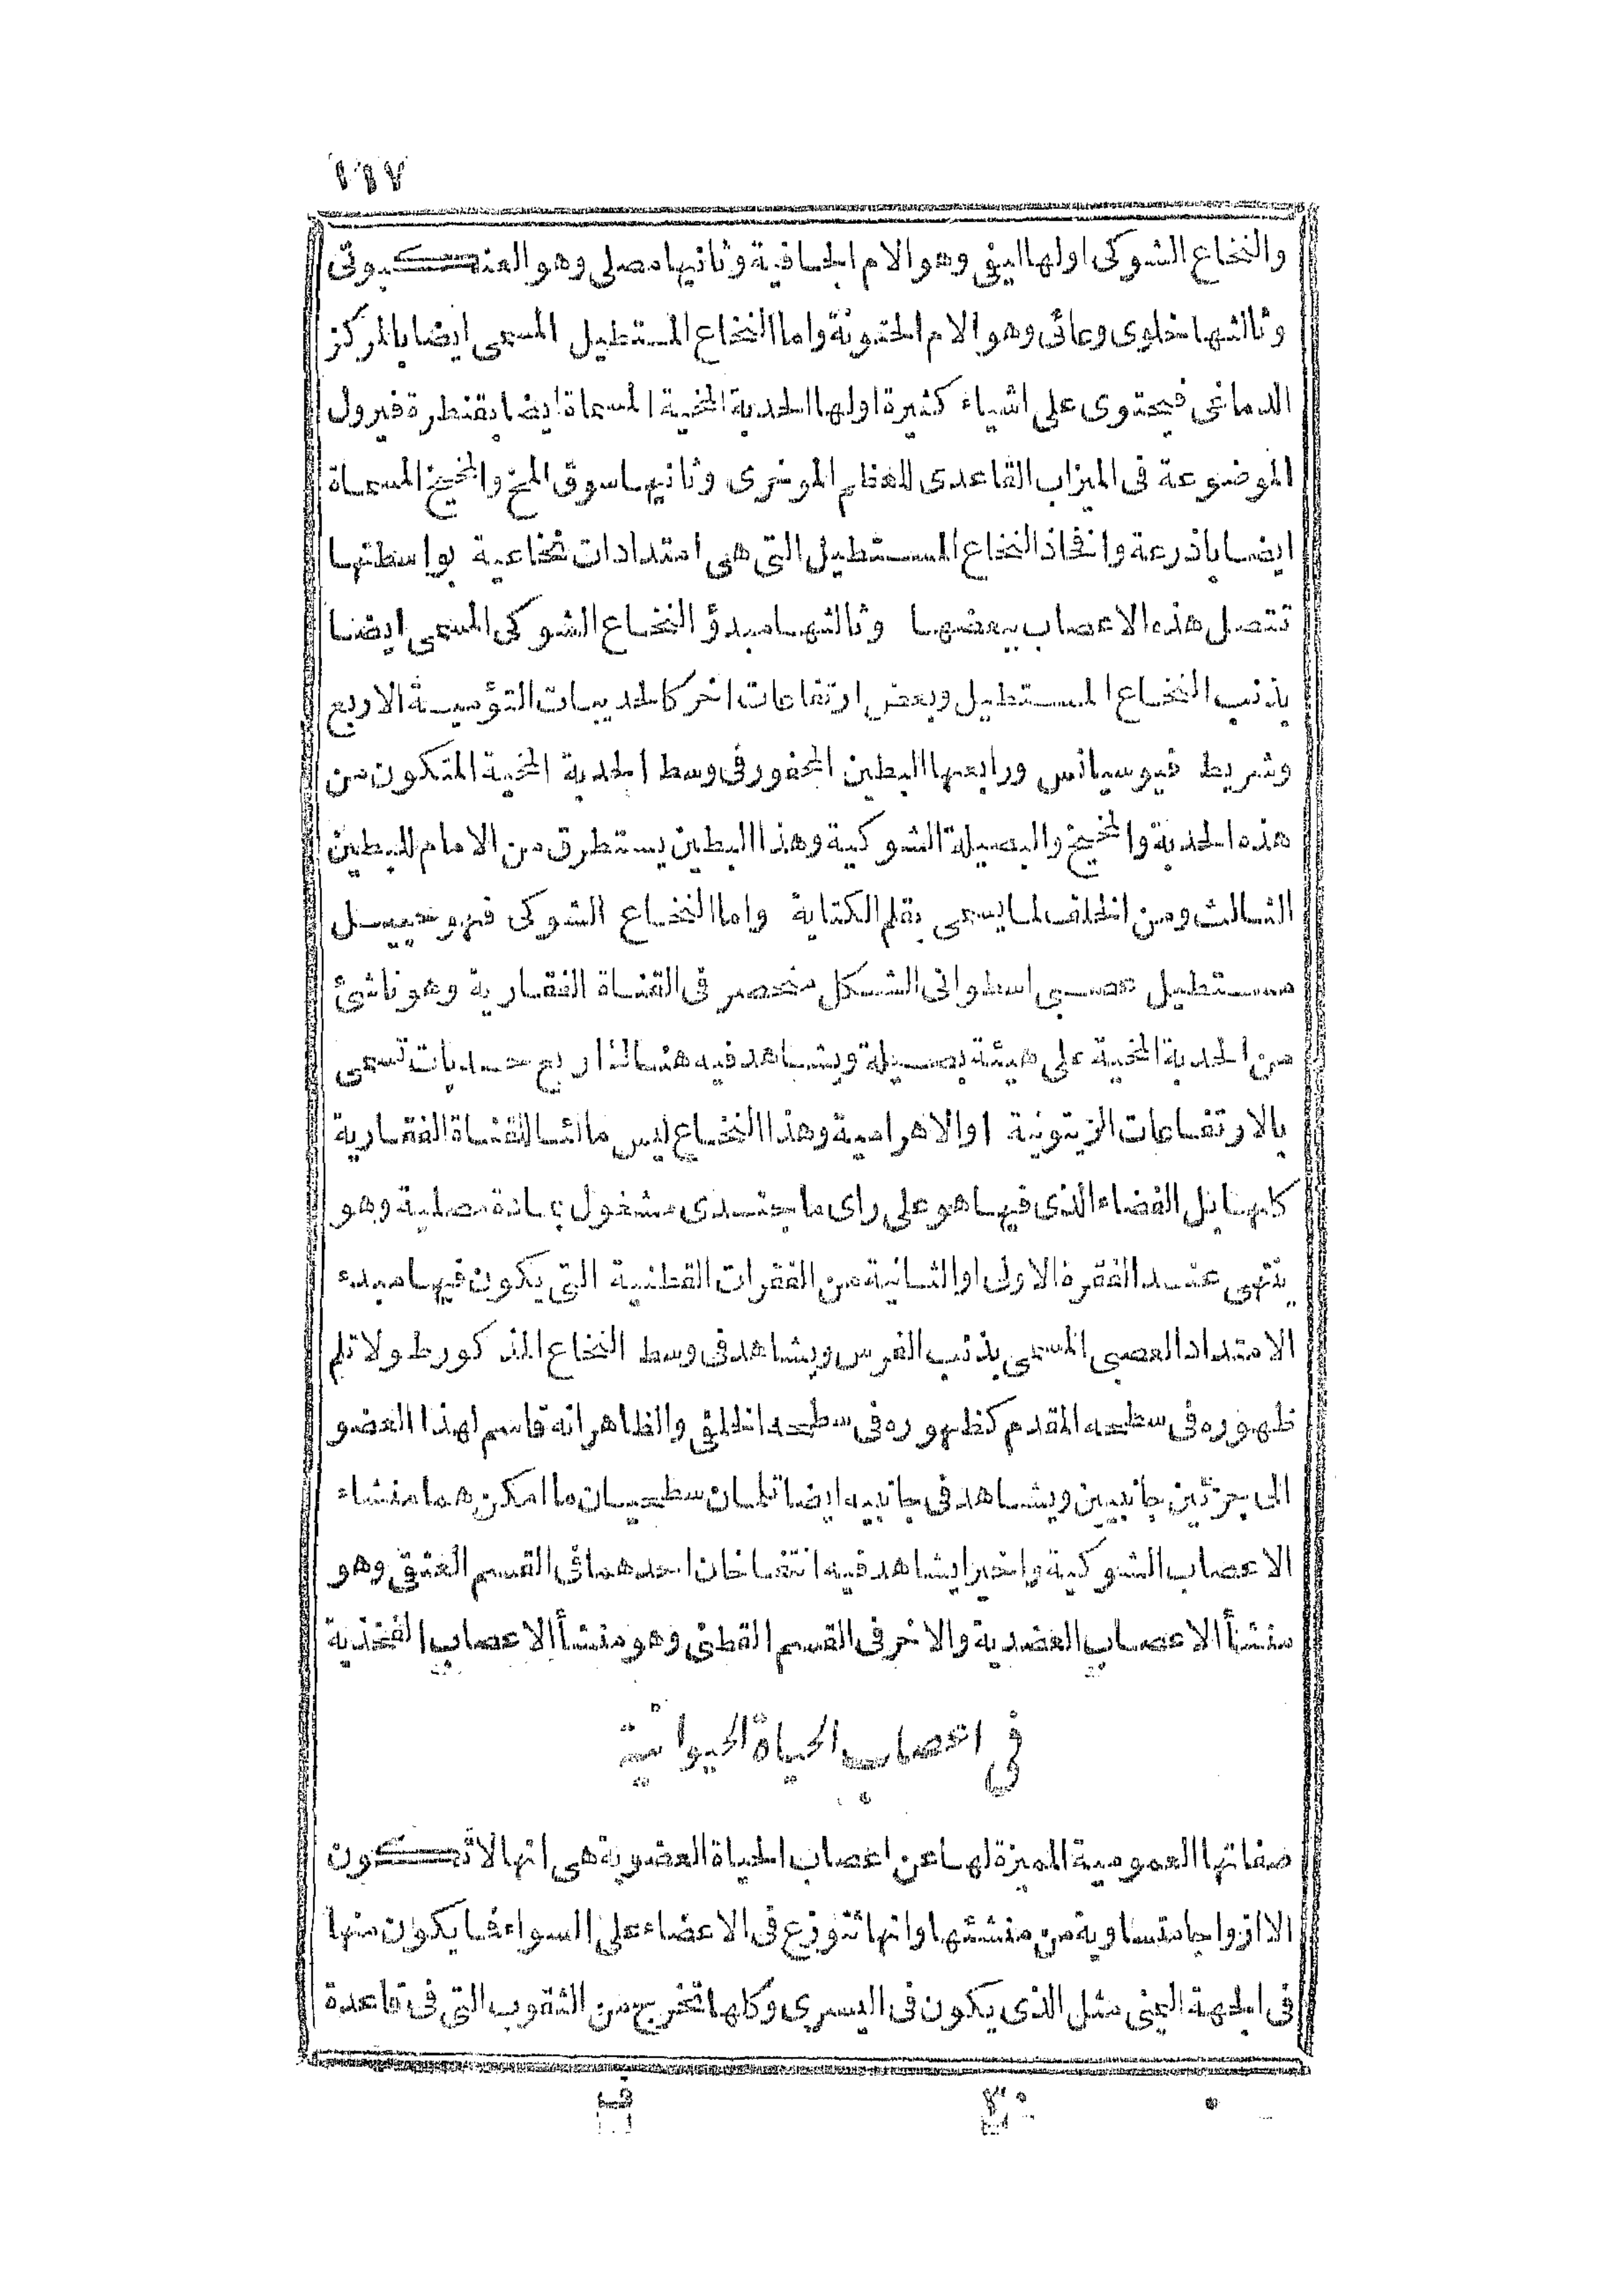 ١١٧
والنخاع الشوكى اولها ليفى وهو الام الجافية وثانيها مصلى وهو العنكبوتى
وثالثها خلوى وعائى وهو الام الحنونة واما النخاع المستطيل المسمى ايضا بالمركز
الدماغى فيحتوى على اشياء كثيرة اولها الحدبة المخية المسماة ايضا بقنطرة فيرول
الموضوعة فى الميزاب القاعدى للعظم الموخرى وثانيها سوق المخ والمخيخ المسماة
ايضا باذرعة وانفاذ النخاع المستطيل التى هى امتدادات نخاعية بواسطتها
تتصل هذه الاعصاب ببعضها وثالثها مبدؤ النخاع الشوكى المسمى ايضا
بذنب النخاع المستطيل وبعض ارتفاعات اخر كالحديبات التؤمية الاربع
وشريط فيوسيانس ورابعها البطين المحفور فى وسط الحدبة المخية المتكون من
هذه الحدبة والمخيخ والبصيلة الشوكية وهذا البطين يستطرق من الامام للبطين
الثالث ومن الخلف لما يسمى بقلم الكتابة واما النخاع الشوكى فهو حبيل
مستطيل عصبى اسطوانى الشكل منحصر فى القناة الفقارية وهو ناشئ
من الحدبة المخية على هيئة بصيلة ويشاهد فيه هنالك اربع حدبات تسمى
بالارتفاعات الزيتونية او الاهرامية وهذا النخاع ليس مالئا للقناة الفقارية
كلها بل الفضاء الذى فيها هو على راى ماجندى مشغول بمادة مصلية وهو
ينتهى عند الفقرة الاولى او الثانية من الفقرات القطنية التى يكون فيها مبدء
الامتداد العصبى المسمى بذنب الفرس ويشاهد فى وسط النخاع المذكور طولا تلم
ظهوره فى سطحه المقدم كظهوره فى سطحه الخلفى والظاهر انه قاسم لهذا العضو
الى جزئين جانبيين ويشاهد فى جانبيه ايضا تلمان سطحيان ما امكن هما منشاء
الاعصاب الشوكية واخيرا يشاهد فيه انتفاخان احدهما فى القسم العنقى وهو
منشأ الاعصاب العضدية والاخر فى القسم القطنى وهو منشأ الاعصاب الفخذية
فى اعصاب الحياة الحيوانية
صفاتها العمومية المميزة لها عن اعصاب الحياة العضوية هى انها لا تكون
الا ازواجا متساوية من منشئها وانها تتوزع فى الاعضاء على السواء فما يكون منها
فى الجهة اليمنى مثل الذى يكون فى اليسرى وكلها تخرج من الثقوب التى فى قاعدة